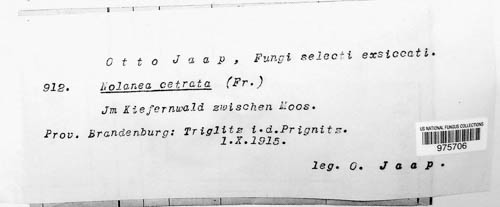 Otto Jaap, Fungi selecti exsiccati.
912. Nolanea cetrata (Fr.)
Jm Kiefernwald zwischen Moos.
Prov. Brandenburg: Triglitz i.d.Prignitz.
1.X.1915.
leg. O. Jaap.
US NATIONAL FUNGUS COLLECTIONS
975706